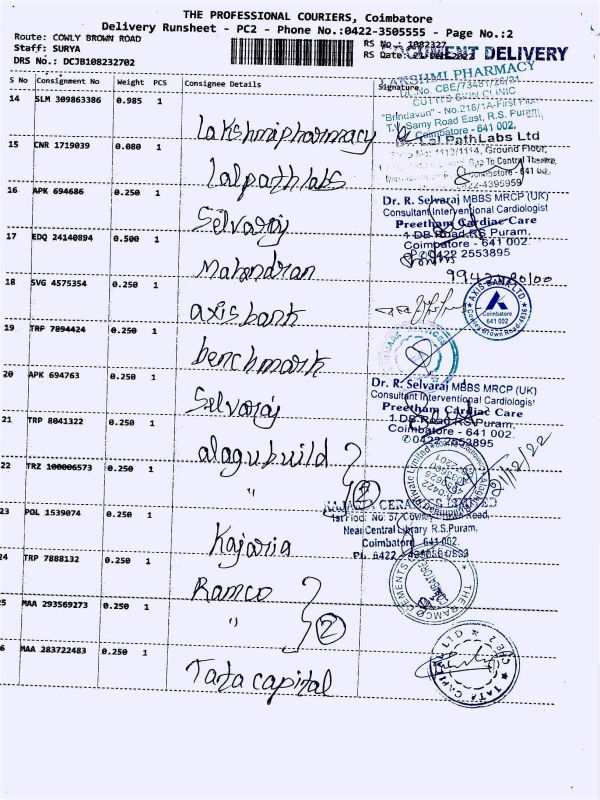 THE PROFESSIONAL COURIERS, Coimbatore
Delivery Runsheet - PC2 - Phone No.:0422-3505555 - Page No.:2
Route: COWLY BROWN ROAD
Staff: SURYA
DRS No.: DCJB108232702
RS No.: 1082327
RS Date:
DELIVERY
S No Consignment No Weight PCS Consignee Details Signature
LAKSHMI PHARMACY
CUTIS SKIN CLINIC
"Brindavan" - No.218/1A-First Floor
T.V. Samy Road East, R.S. Puram,
Coimbatore - 641 002.
14 SLM 309863386 0.985 1 Lakshmipharmacy
Dr. Lal PathLabs Ltd
Ground Floor,
To Central Theatre,
0422-4395959
15 CNR 1719039 0.080 1 lalpathlabs
16 APK 694686 0.250 1 Selvaraj
Dr. R. Selvaraj MBBS MRCP (UK)
Consultant Interventional Cardiologist
Preetham Cardiac Care
1 DB Road RS Puram,
Coimbatore - 641 002.
0422 2553895
17 EDQ 24140894 0.500 1 Mahendran
18 SVG 4575354 0.250 1 axis bank
AXIS BANK LTD
Coimbatore
641 002
19 TRP 7894424 0.250 1 benchmark
20 APK 694763 0.250 1 Selvaraj
Dr. R. Selvaraj MBBS MRCP (UK)
Consultant Interventional Cardiologist
Preetham Cardiac Care
1 DB Road RS Puram,
Coimbatore - 641 002.
0422 2553895
21 TRP 8041322 0.250 1 alagubuild
21/12/22
22 TRZ 100006573 0.250 1 " 2
KAJARIA CERAMICS LIMITED
Ist Floor, No: 57 Cowley Brown Road,
Near Central Library R.S.Puram,
Coimbatore 641 002.
23 POL 1539074 0.250 1 Kajaria
24 TRP 7888132 0.250 1 Ramco
THE RAMCO CEMENTS
25 MAA 293569273 0.250 1 " 2
6 MAA 283722483 0.250 1 Tata capital
TATA CAPITAL LTD